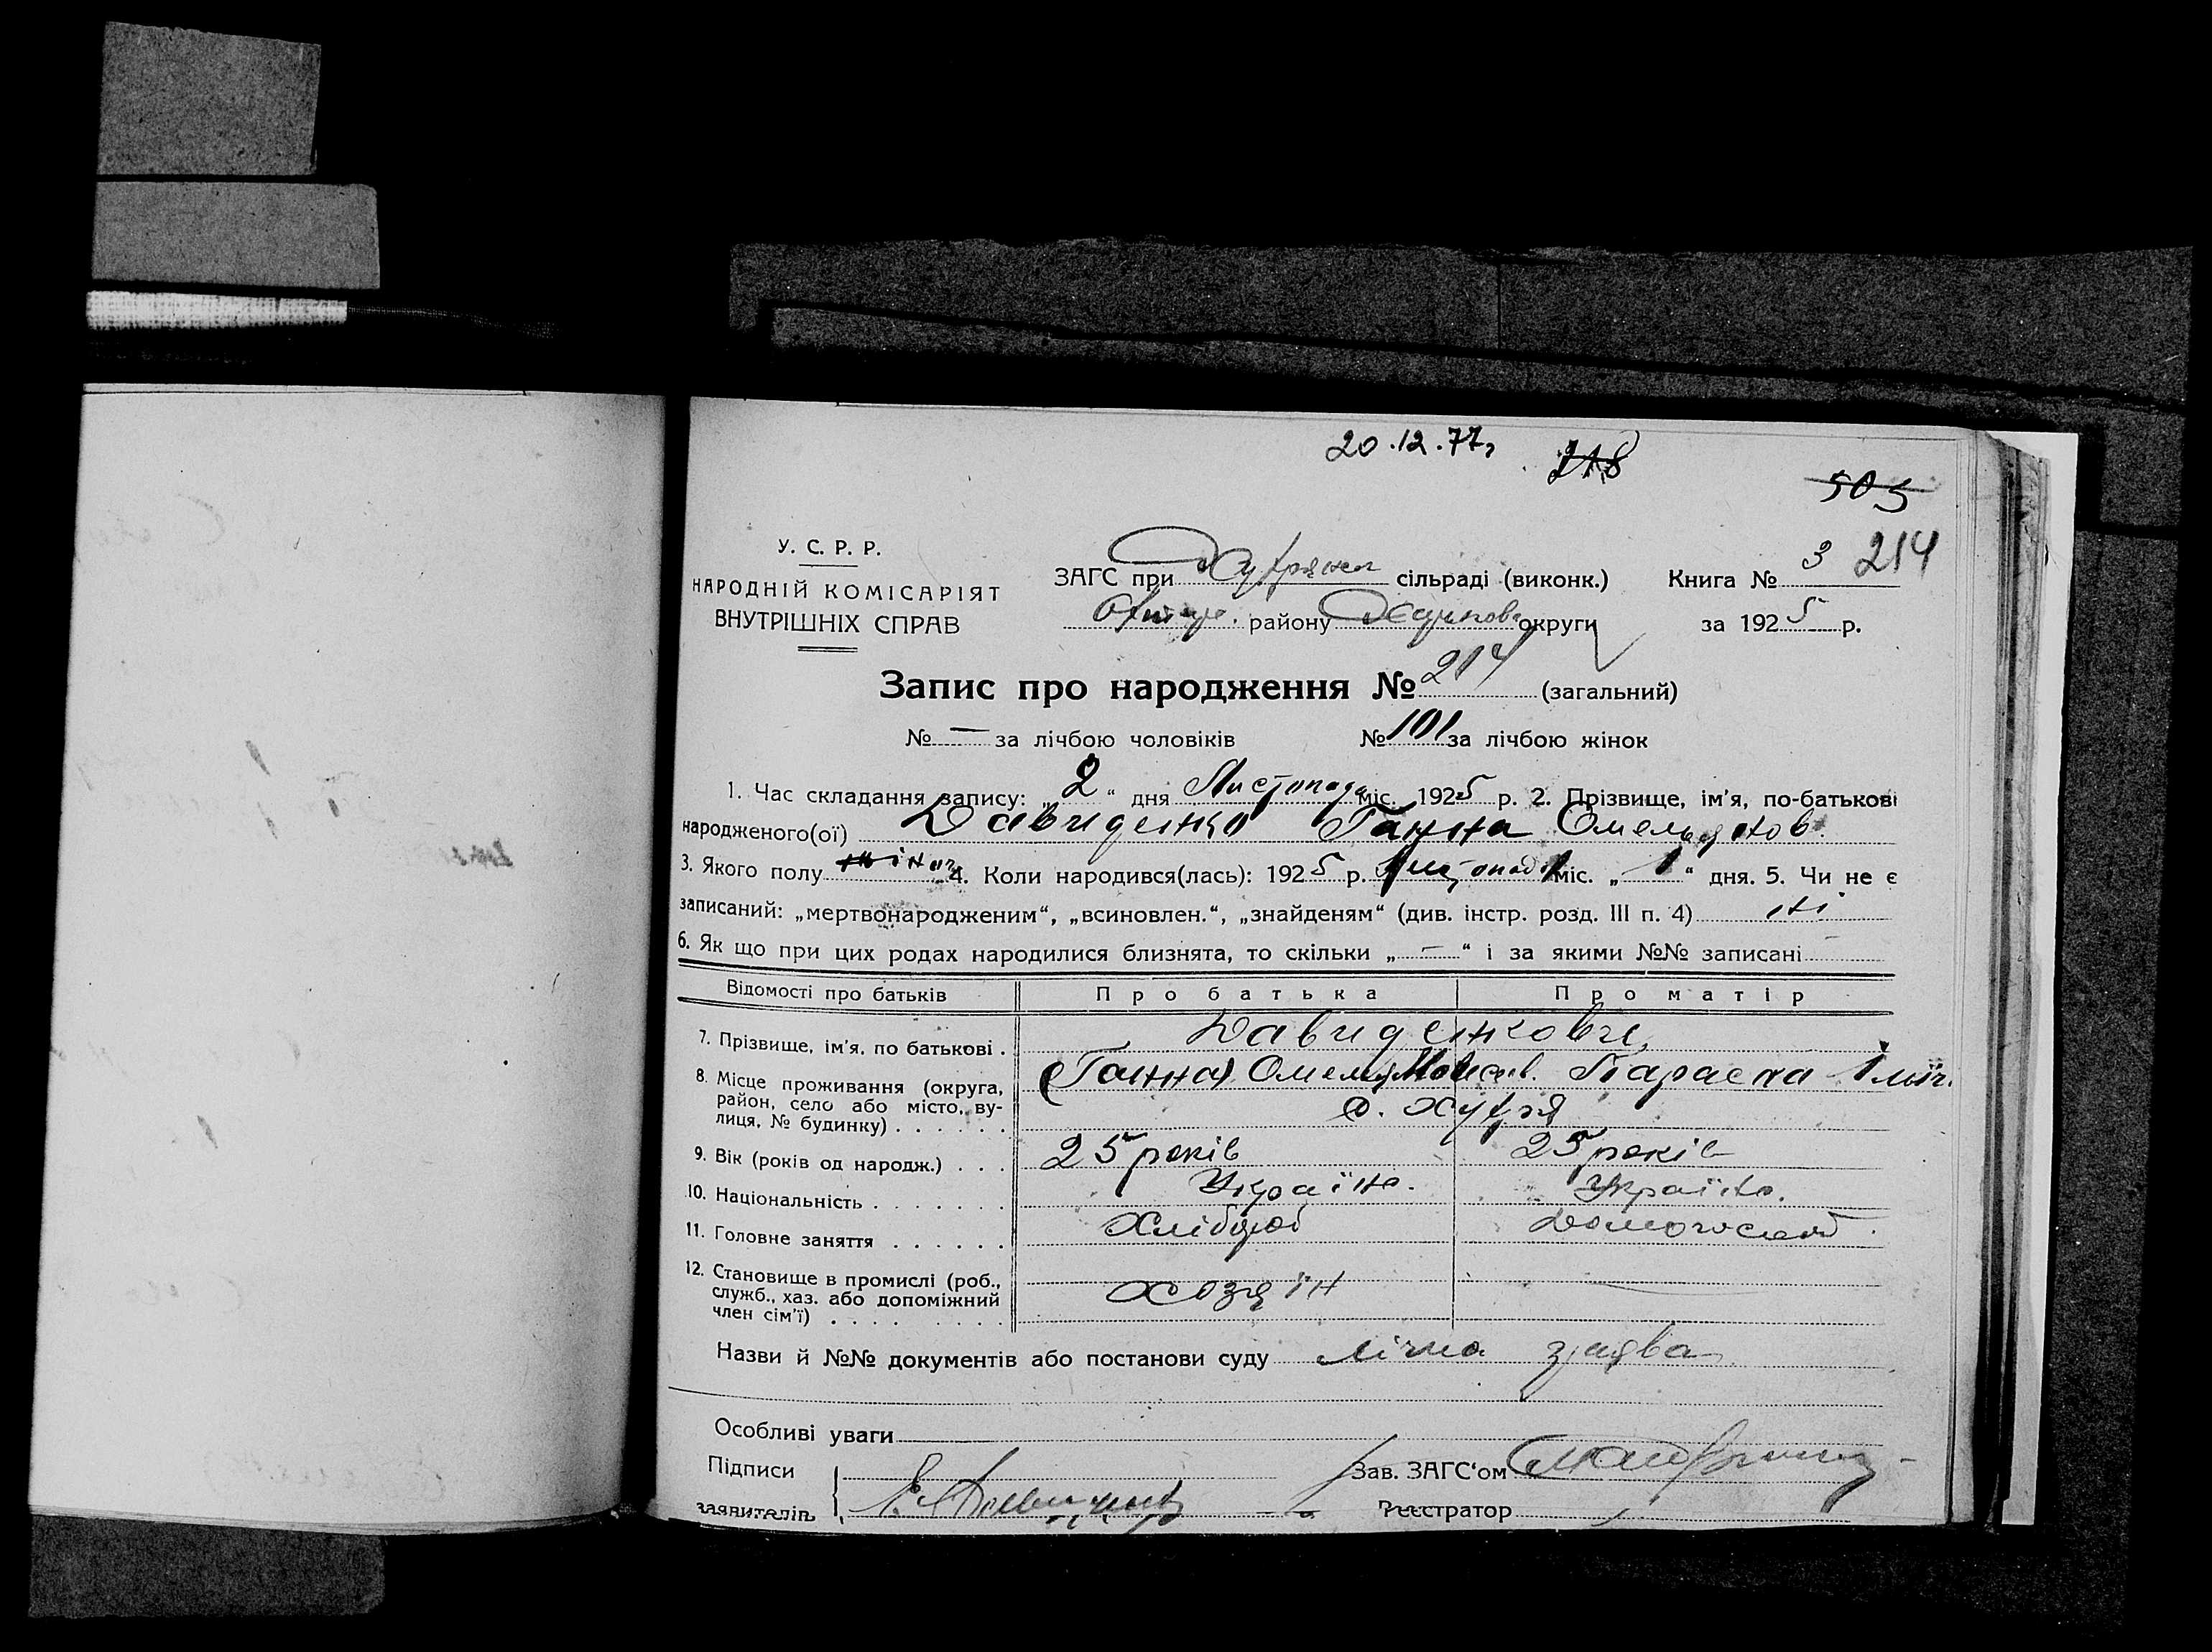 20.12.77
218
505
214
У. С. Р. Р.
НАРОДНІЙ КОМІСАРІЯТ
ВНУТРІШНІХ СПРАВ
ЗАГС при сільраді (виконк.) Книга № 3
району округи за 1925 р.
Запис про народження № 214 (загальний)
№ — за лічбою чоловіків № 101 за лічбою жінок
1. Час складання запису: „2“ дня Листопада міс. 1925 р. 2. Прізвище, ім'я, по-батькові
народженого(ої) Давиденко Ганна Омельянов.
3. Якого полу жіноч. 4. Коли народився(лась): 1925 р. Листопада міс. „1“ дня. 5. Чи не є
записаний: „мертвонародженим“, „всиновлен.“, „знайденям“ (див. інстр. розд. III п. 4) ні
6. Як що при цих родах народилися близнята, то скільки „—“ і за якими №№ записані —
Відомості про батьків Про батька Про матір
7. Прізвище, ім'я, по батькові . Давиденкови
(Ганна) Омелян Параска
8. Місце проживання (округа, район, село або місто, вулиця, № будинку) . . . . . . с. Хухря
9. Вік (років од народж.) . . . 25 років 25 років
10. Національність . . . . . . . Україн. Україн.
11. Головне заняття . . . . . . Хлібороб
12. Становище в промислі (роб., служб., хаз. або допоміжний член сім'ї) . . . . . . . . . хозяїн —
Назви й №№ документів або постанови суду лічна заява
Особливі уваги
Підписи Зав. ЗАГС'ом
заявителів Реєстратор